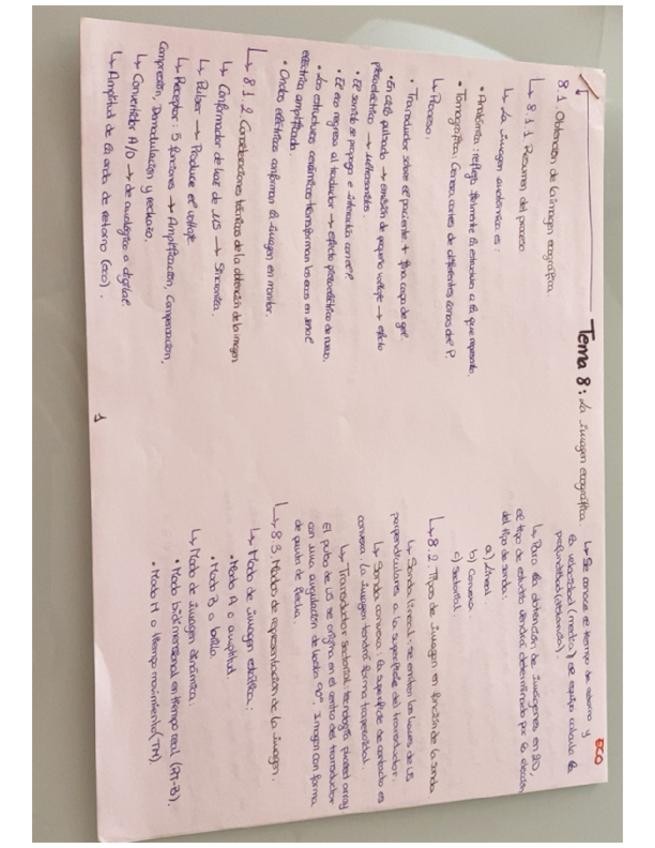 ECO
Tema 8: La imagen ecográfica.
8.1. Obtención de la imagen ecográfica.
↳ 8.1.1 Resumen del proceso
↳ La imagen anatómica es:
• Anatómica: refleja fielmente la estructura a la que representa.
• Tomográfica: Genera cortes de diferentes zonas del P.
↳ Proceso:
• Transductor sobre el paciente + fina capa de gel.
• En cada pulsado → emisión de pequeño voltaje → efecto
piezoeléctrico → ultrasonidos.
• El sonido se propaga e interactúa con el P.
• El eco regresa al traductor → efecto piezoeléctrico de nuevo.
• Las estructuras cerámicas transforman los ecos en señal
eléctrica amplificada.
• Ondas eléctricas conforman la imagen en monitor.
↳ 8.1.2. Consideraciones técnicas de la obtención de la imagen
↳ Conformador de haz de US → Sincroniza.
↳ Pulser → Produce el voltaje
↳ Receptor: 5 funciones → Amplificación, Compensación,
Compresión, Demodulación y rechazo.
↳ Convertidor A/D → de analógico a digital.
↳ Amplitud de la onda de retorno (eco).
1
↳ Se conoce el tiempo de retorno y
la velocidad (media) el equipo calcula la
profundidad (distancia).
↳ Para la obtención de imágenes en 2D,
el tipo de estudio vendrá determinado por la elección
del tipo de sonda:
a) Lineal.
b) Convexa.
c) Sectorial.
↳ 8.2. Tipos de imagen en función de la sonda.
↳ Sonda lineal: se emiten los haces de US
perpendiculares a la superficie del transductor.
↳ Sonda convexa: la superficie de contacto es
convexa. La imagen tendrá forma trapezoidal.
↳ Transductor sectorial: tecnología phased array
El pulso de US se origina en el centro del transductor
con una angulación de hasta 90º. Imagen con forma
de punta de flecha.
↳ 8.3. Modos de representación de la imagen.
↳ Modo de imagen estática:
• Modo A o amplitud
• Modo B o brillo
↳ Modo de imagen dinámica:
• Modo bidimensional en tiempo real (RT-B).
• Modo M o tiempo movimiento (TM).